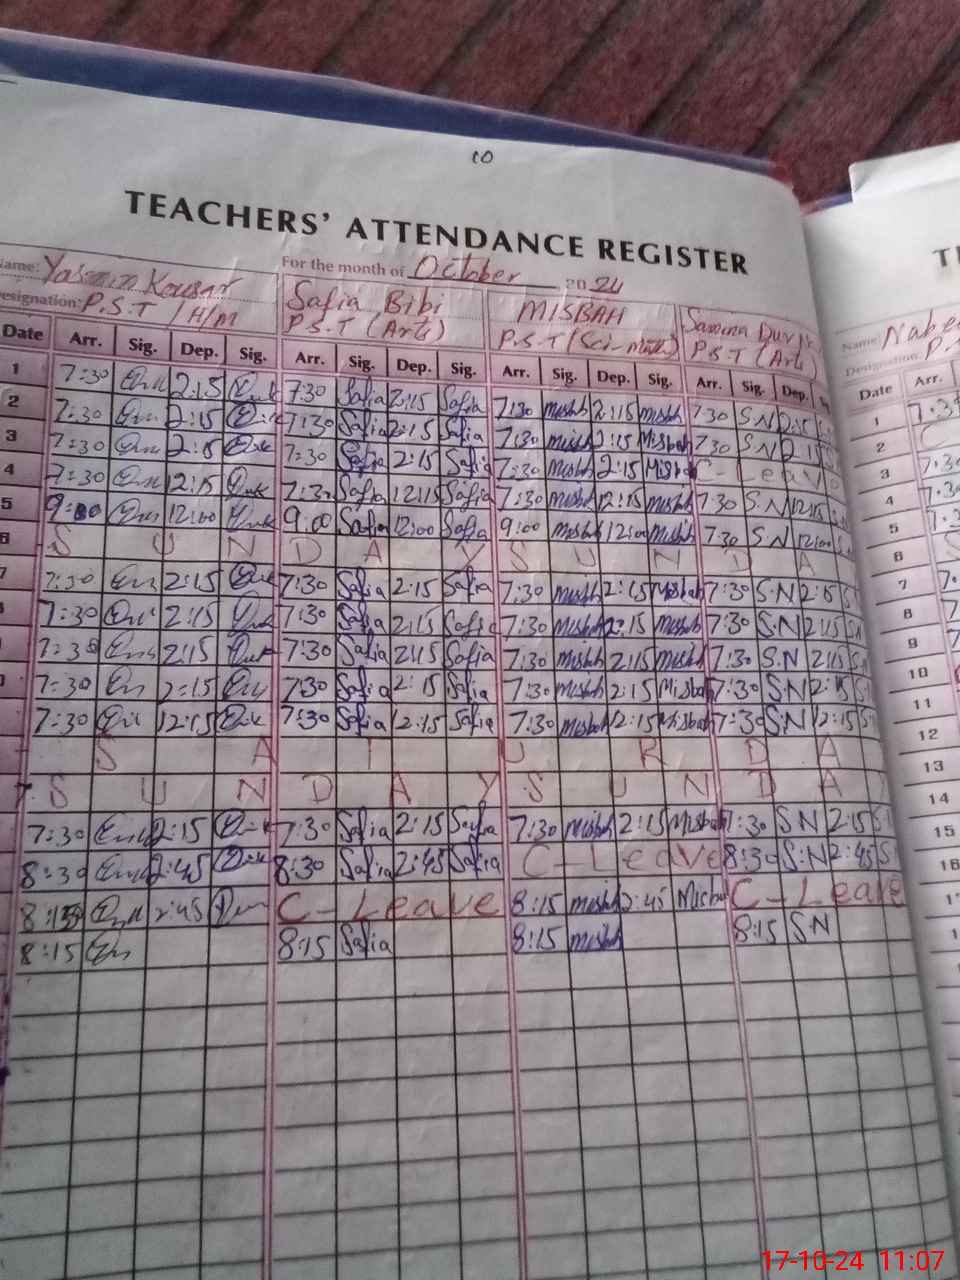 10
TEACHERS' ATTENDANCE REGISTER
For the month of October 2024
Name: Yasmin Kousar Safia Bibi MISBAH Samina
Designation: P.S.T / H/M P.S.T (Arts) P.S.T (Sci-math) P.S.T (Arts
Date Arr. Sig. Dep. Sig. Arr. Sig. Dep. Sig. Arr. Sig. Dep. Sig. Arr. Sig. Dep.
1 7:30 2:15 7:30 Safia 2:15 Safia 7:30 Misbh 2:15 Misbh 7:30 S.N 2:15
2 7:30 2:15 7:30 Safia 2:15 Safia 7:30 Misbh 2:15 Misbah 7:30 S.N 2:15
3 7:30 2:15 7:30 Safia 2:15 Safia 7:30 Misbh 2:15 Misbah C-Leave
4 7:30 12:15 7:30 Safia 12:15 Safia 7:30 Misbh 12:15 Misbh 7:30 S.N 12:15
5 9:00 12:00 9:00 Safia 12:00 Safia 9:00 Misbh 12:00 Misbh 7:30 S.N 12:00
6 S U N D A Y S U N D A
7 7:30 2:15 7:30 Safia 2:15 Safia 7:30 Misbh 2:15 Misbah 7:30 S.N 2:15
7:30 2:15 7:30 Safia 2:15 Safia 7:30 Misbh 2:15 Misbh 7:30 S.N 2:15
7:30 2:15 7:30 Safia 2:15 Safia 7:30 Misbh 2:15 Misbh 7:30 S.N 2:15
7:30 2:15 7:30 Safia 2:15 Safia 7:30 Misbh 2:15 Misbah 7:30 S.N 2:15
7:30 12:15 7:30 Safia 12:15 Safia 7:30 Misbah 12:15 Misbah 7:30 S.N 12:15
S A T U R D A
S U N D A Y S U N D A
7:30 2:15 7:30 Safia 2:15 Safia 7:30 Misbh 2:15 Misbah 7:30 S.N 2:15
8:30 2:45 8:30 Safia 2:45 Safia C-Leave 8:30 S.N 2:45
8:15 2:45 C-Leave 8:15 Misbh 2:45 Misbah C-Leave
8:15 8:15 Safia 8:15 Misbh 8:15 S.N
Name:
Designation:
Date Arr.
1
2
3
4
5
6
7
8
9
10
11
12
13
14
15
16
17-10-24 11:07